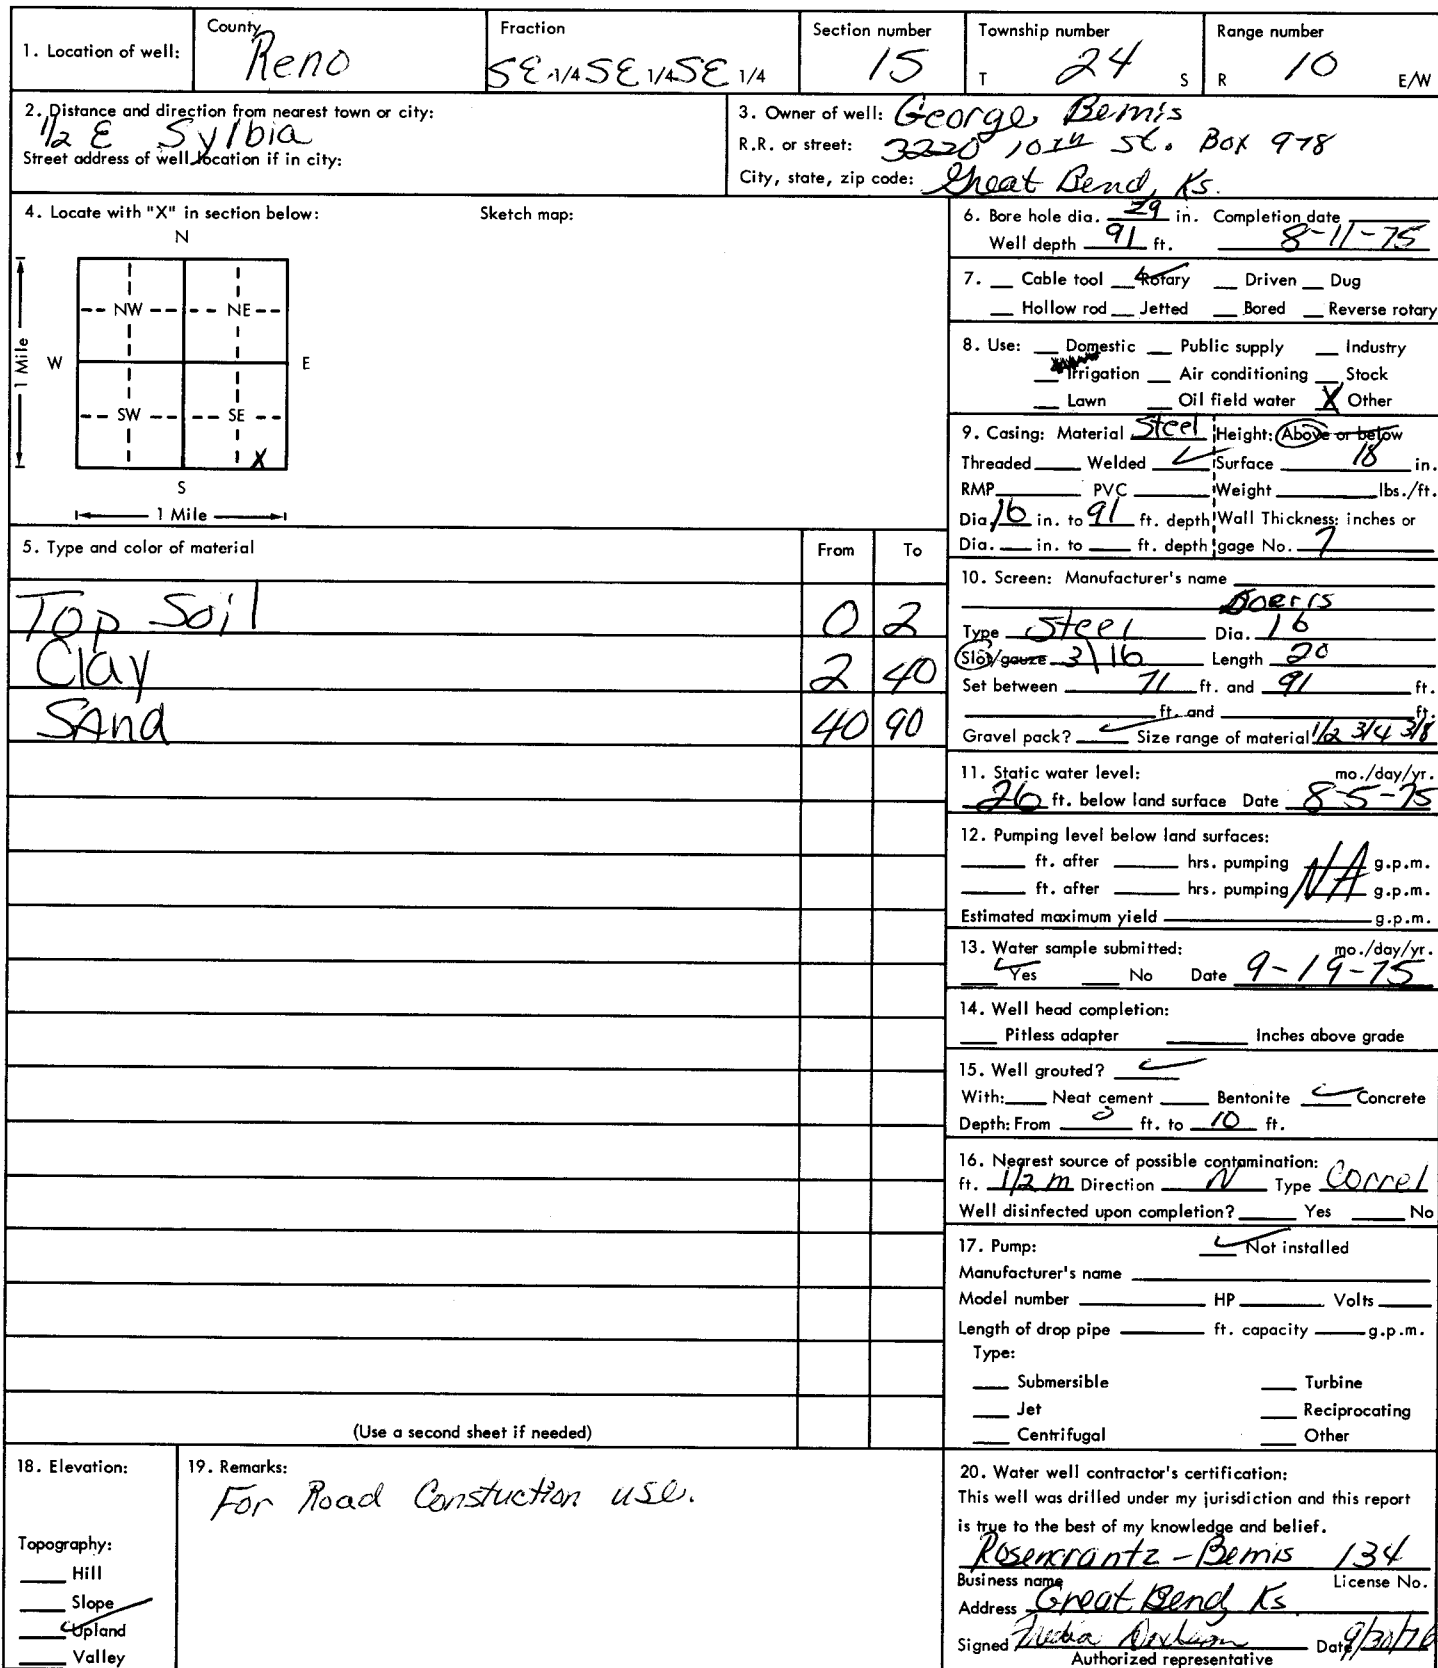 1. Location of well: County Reno Fraction SE 1/4 SE 1/4 SE 1/4 Section number 15 Township number T 24 S Range number R 10 E/W
2. Distance and direction from nearest town or city:
1/2 E Sylbia
Street address of well location if in city:
3. Owner of well: George Bemis
R.R. or street: 3220 10th St. Box 978
City, state, zip code: Great Bend, Ks.
4. Locate with "X" in section below: Sketch map:
N
NW NE
1 Mile W E
SW SE
X
S
1 Mile
5. Type and color of material From To
Top Soil 0 2
Clay 2 40
SAnd 40 90
(Use a second sheet if needed)
6. Bore hole dia. 29 in. Completion date
Well depth 91 ft. 8-11-75
7. Cable tool ✓ Rotary Driven Dug
Hollow rod Jetted Bored Reverse rotary
8. Use: Domestic Public supply Industry
Irrigation Air conditioning Stock
Lawn Oil field water X Other
9. Casing: Material Steel Height: Above or below
Threaded Welded ✓ Surface 18 in.
RMP PVC Weight lbs./ft.
Dia. 16 in. to 91 ft. depth Wall Thickness: inches or
Dia. in. to ft. depth gage No. 7
10. Screen: Manufacturer's name
Doerrs
Type Steel Dia. 16
Slot/gauze 3\16 Length 20
Set between 71 ft. and 91 ft.
ft. and ft.
Gravel pack? ✓ Size range of material 1/2 3/4 3/8
11. Static water level: mo./day/yr.
26 ft. below land surface Date 8-5-75
12. Pumping level below land surfaces:
ft. after hrs. pumping g.p.m.
ft. after hrs. pumping NA g.p.m.
Estimated maximum yield g.p.m.
13. Water sample submitted: mo./day/yr.
✓ Yes No Date 9-19-75
14. Well head completion:
Pitless adapter Inches above grade
15. Well grouted? ✓
With: Neat cement Bentonite ✓ Concrete
Depth: From 0 ft. to 10 ft.
16. Nearest source of possible contamination:
ft. 1/2 m Direction N Type Correl
Well disinfected upon completion? Yes No
17. Pump: ✓ Not installed
Manufacturer's name
Model number HP Volts
Length of drop pipe ft. capacity g.p.m.
Type:
Submersible Turbine
Jet Reciprocating
Centrifugal Other
18. Elevation:
Topography:
Hill
Slope
✓ Upland
Valley
19. Remarks:
For Road Constuction use.
20. Water well contractor's certification:
This well was drilled under my jurisdiction and this report
is true to the best of my knowledge and belief.
Rosencrantz-Bemis 134
Business name License No.
Address Great Bend, Ks
Signed Date 9/30/76
Authorized representative